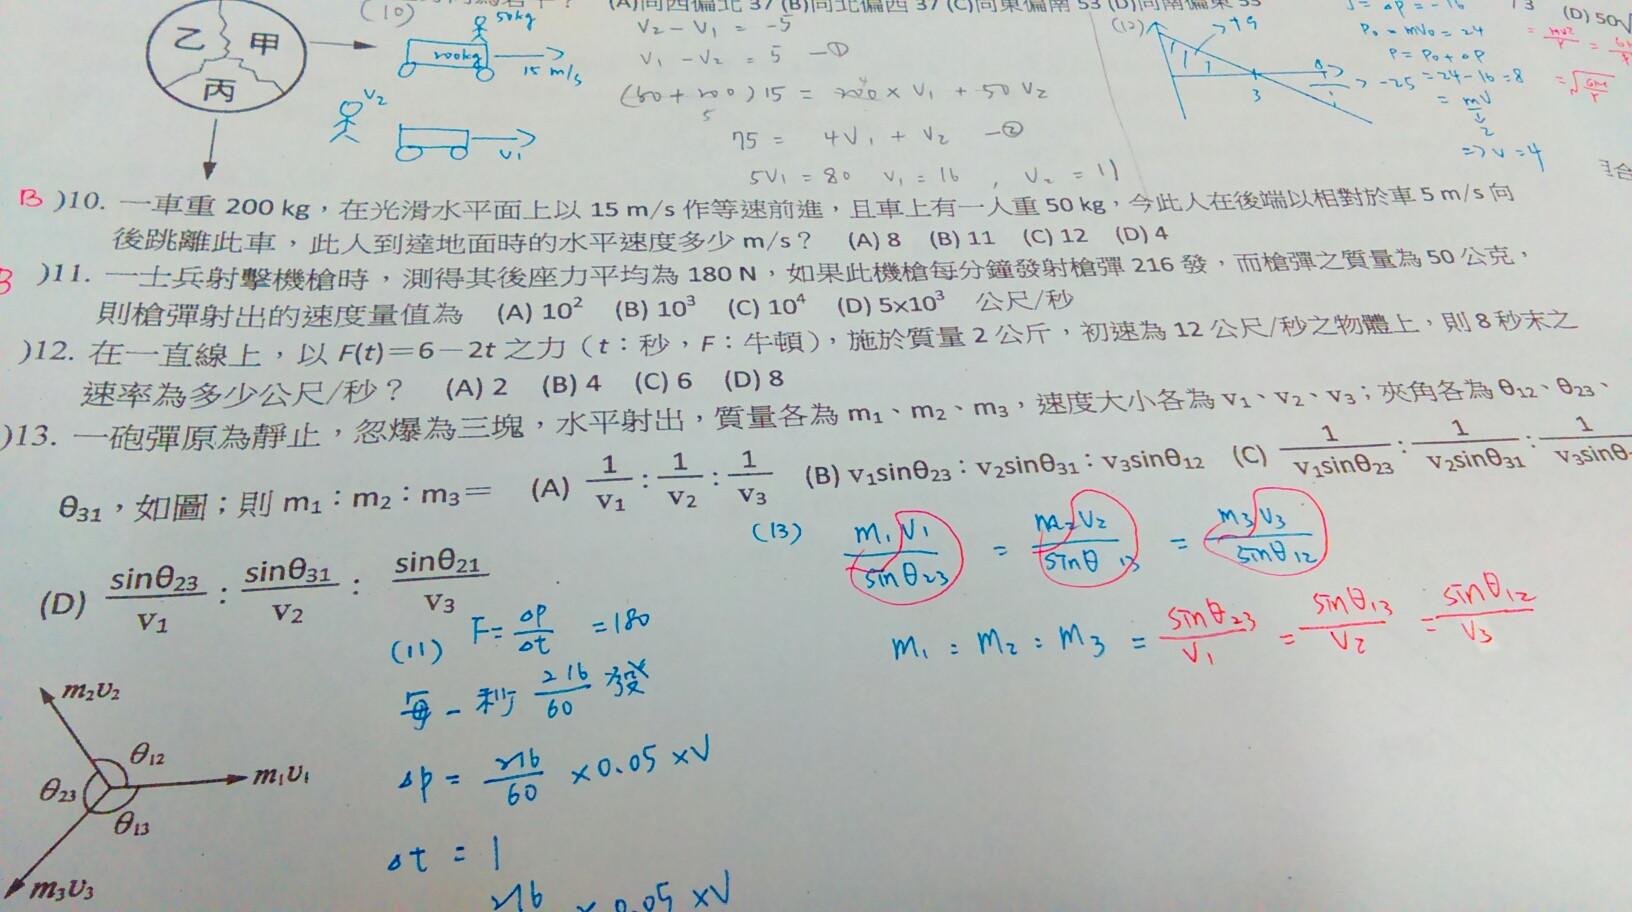 (A)向西偏北 37 (B)向北偏西 37 (C)向東偏南 53 (D)向南偏東 53
(D) 50√
乙 甲
丙
(10)
50kg
200kg
15 m/s
V2
V1
V2 - V1 = -5
V1 - V2 = 5 —①
(50+200)15 = 200 × V1 + 50 V2
5
4
75 = 4V1 + V2 —②
5V1 = 80 V1 = 16 , V2 = 11
(12)
+9
3
-25
P0 = mV0 = 24
P = P0 + ΔP
= 24 - 16 = 8
= mV
2
=> V = 4
B )10. 一車重 200 kg，在光滑水平面上以 15 m/s 作等速前進，且車上有一人重 50 kg，今此人在後端以相對於車 5 m/s 向
後跳離此車，此人到達地面時的水平速度多少 m/s？ (A) 8 (B) 11 (C) 12 (D) 4
B )11. 一士兵射擊機槍時，測得其後座力平均為 180 N，如果此機槍每分鐘發射槍彈 216 發，而槍彈之質量為 50 公克，
則槍彈射出的速度量值為 (A) 10² (B) 10³ (C) 10⁴ (D) 5x10³ 公尺/秒
)12. 在一直線上，以 F(t)＝6－2t 之力（t：秒，F：牛頓），施於質量 2 公斤，初速為 12 公尺/秒之物體上，則 8 秒末之
速率為多少公尺/秒？ (A) 2 (B) 4 (C) 6 (D) 8
)13. 一砲彈原為靜止，忽爆為三塊，水平射出，質量各為 m₁、m₂、m₃，速度大小各為 v₁、v₂、v₃；夾角各為 θ₁₂、θ₂₃、
θ₃₁，如圖；則 m₁：m₂：m₃＝ (A) 1/v₁：1/v₂：1/v₃ (B) v₁sinθ₂₃：v₂sinθ₃₁：v₃sinθ₁₂ (C) 1/v₁sinθ₂₃：1/v₂sinθ₃₁：1/v₃sinθ
(D) sinθ₂₃/v₁：sinθ₃₁/v₂：sinθ₂₁/v₃
(13) m₁V₁/sinθ₂₃ = m₂V₂/sinθ₁₃ = m₃V₃/sinθ₁₂
m₁ : m₂ : m₃ = sinθ₂₃/V₁ = sinθ₁₃/V₂ = sinθ₁₂/V₃
(11) F = ΔP/Δt = 180
每一秒 216/60 發
Δp = 216/60 × 0.05 × V
Δt = 1
216 × 0.05 × V
m₂υ₂
θ₁₂
m₁υ₁
θ₂₃
θ₁₃
m₃υ₃